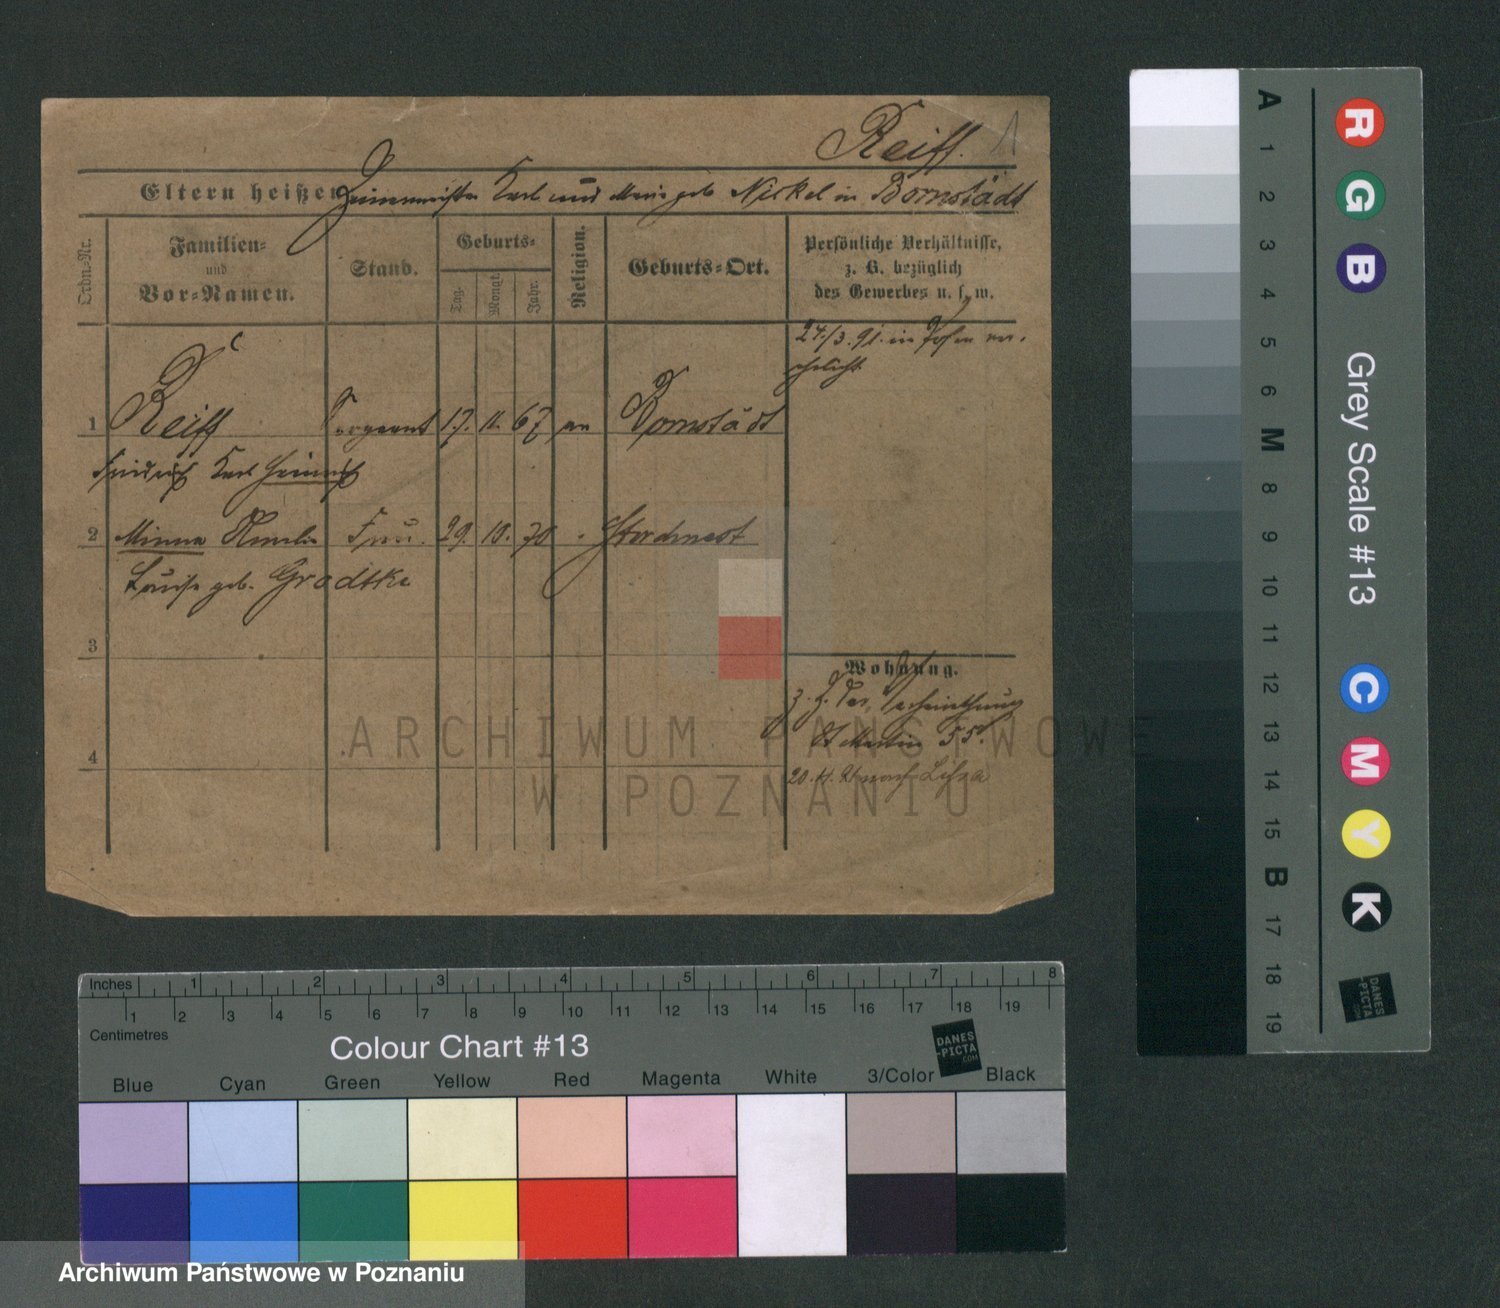 Reiff. 1
Eltern heißen Zimmermeister Karl und Marie geb. Nickel in Bornstädt
Ordn.=Nr.
Familien=
und
Vor=Namen.
Stand.
Geburts=
Tag.
Monat.
Jahr.
Religion.
Geburts=Ort.
Persönliche Verhältnisse,
z. B. bezüglich
des Gewerbes u. s. w.
24/3. 91. in Posen ver=
ehelicht
1 Reiff Sergeant 17. 11. 67 ev Bornstädt
Friedrich Karl Heinrich
2 Minna Amalie Frau. 29. 10. 70 Storchnest
Louise geb. Grodtke
3
4
Wohnung.
St Martin 55.
20. 4. 91 nach Lissa
ARCHIWUM PAŃSTWOWE
W POZNANIU
A 1 2 3 4 5 6 M 8 9 10 11 12 13 14 15 B 17 18 19
R G B Grey Scale #13 C M Y K
DANES
-PICTA
.COM
Inches 1 2 3 4 5 6 7 8
1 2 3 4 5 6 7 8 9 10 11 12 13 14 15 16 17 18 19
Centimetres
Colour Chart #13
DANES
-PICTA
.COM
Blue Cyan Green Yellow Red Magenta White 3/Color Black
Archiwum Państwowe w Poznaniu